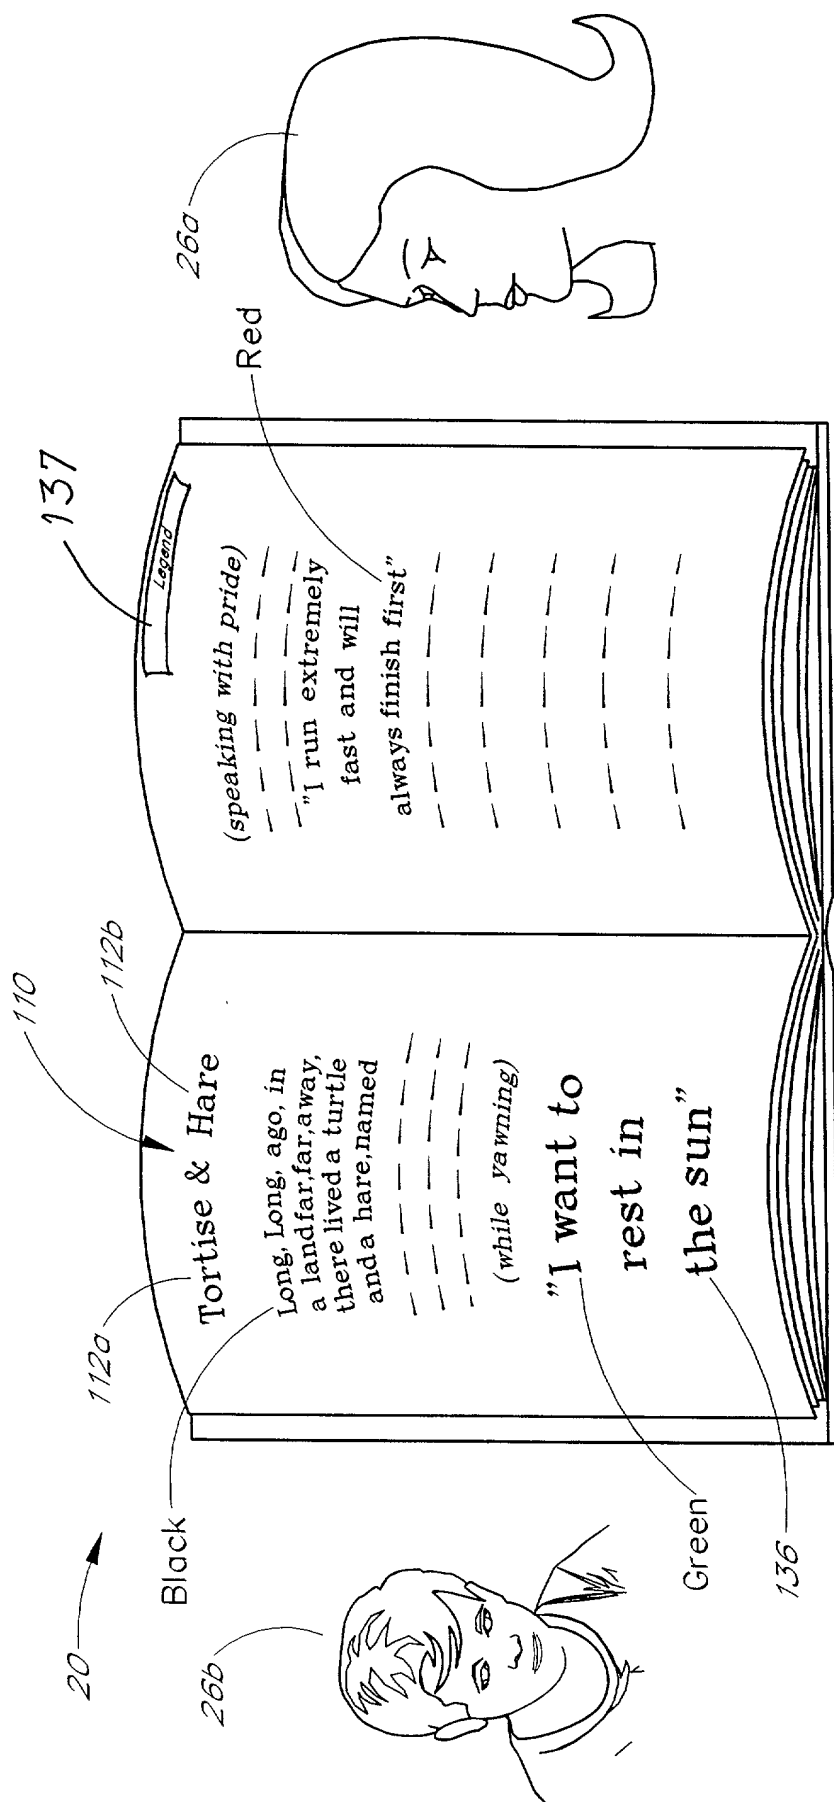 20
110
112a
112b
Tortise & Hare
Black
Long, Long, ago, in
a land far,far,away,
there lived a turtle
and a hare,named
(while yawning)
"I want to
rest in
the sun"
Green
136
26b
137
Legend
(speaking with pride)
"I run extremely
fast and will
always finish first"
Red
26a